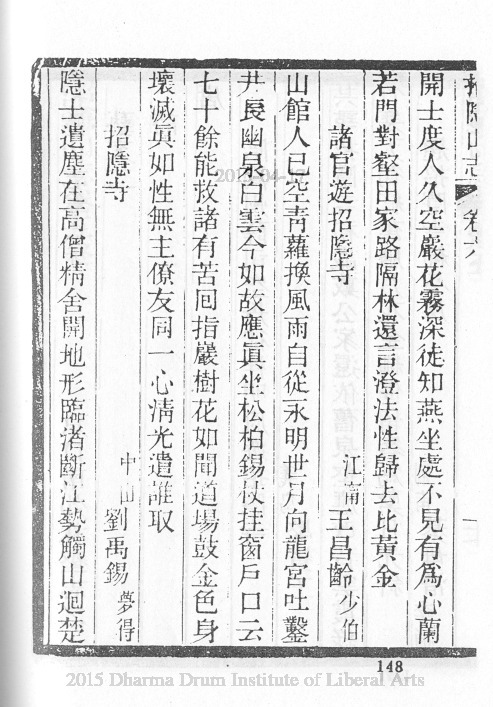 招隱山志 卷六
開士度人久空巖花霧深徒知燕坐處不見有爲心蘭
若門對壑田家路隔林還言澄法性歸去比黃金
諸官遊招隱寺 江甯 王昌齡 少伯
山館人已空青蘿換風雨自從永明世月向龍宮吐鑿
井長幽泉白雲今如故應眞坐松柏錫杖挂窗戶口云
七十餘能救諸有苦回指巖樹花如聞道場鼓金色身
壞滅眞如性無主僚友同一心淸光遣誰取
招隱寺 中山 劉禹錫 夢得
隱士遺塵在高僧精舍開地形臨渚斷江勢觸山迴楚
148
2015 Dharma Drum Institute of Liberal Arts